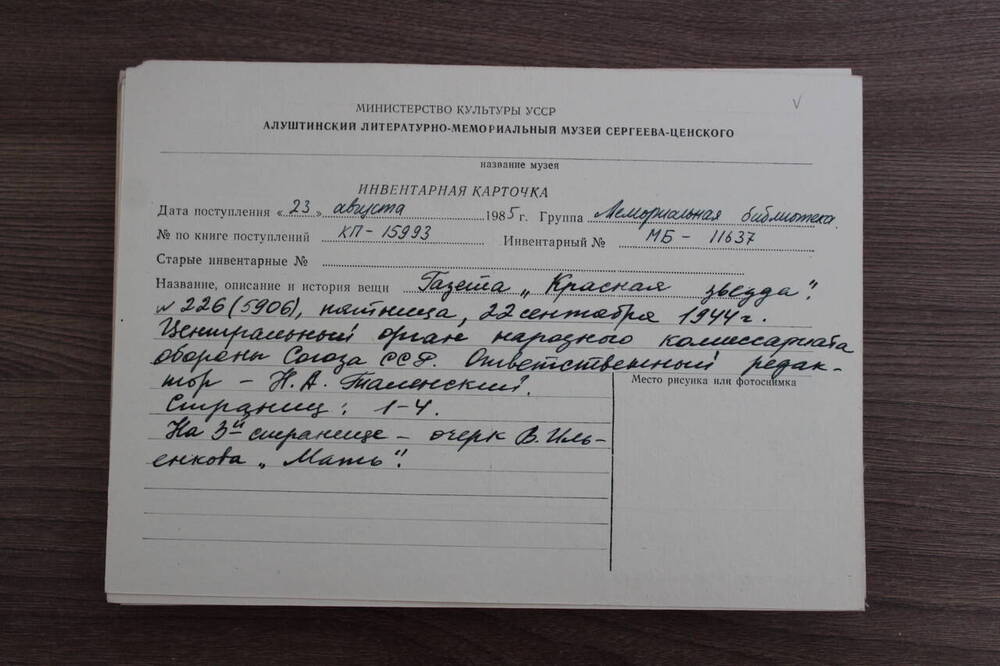 МИНИСТЕРСТВО КУЛЬТУРЫ УССР
АЛУШТИНСКИЙ ЛИТЕРАТУРНО-МЕМОРИАЛЬНЫЙ МУЗЕЙ СЕРГЕЕВА-ЦЕНСКОГО
название музея
ИНВЕНТАРНАЯ КАРТОЧКА
Дата поступления «23» августа 1985 г. Группа Мемориальная библиотека
№ по книге поступлений КП-15993 Инвентарный № МБ-11637
Старые инвентарные №
Название, описание и история вещи Газета „Красная звезда".
№ 226 (5906), пятница, 22 сентября 1944 г.
Центральный орган народного комиссариата
обороны Союза ССР. Ответственный редак-
тор - Н. А. Таленский.
Место рисунка или фотоснимка
Страниц: 1-4.
На 3й странице - очерк В. Иль-
енкова „Мать".